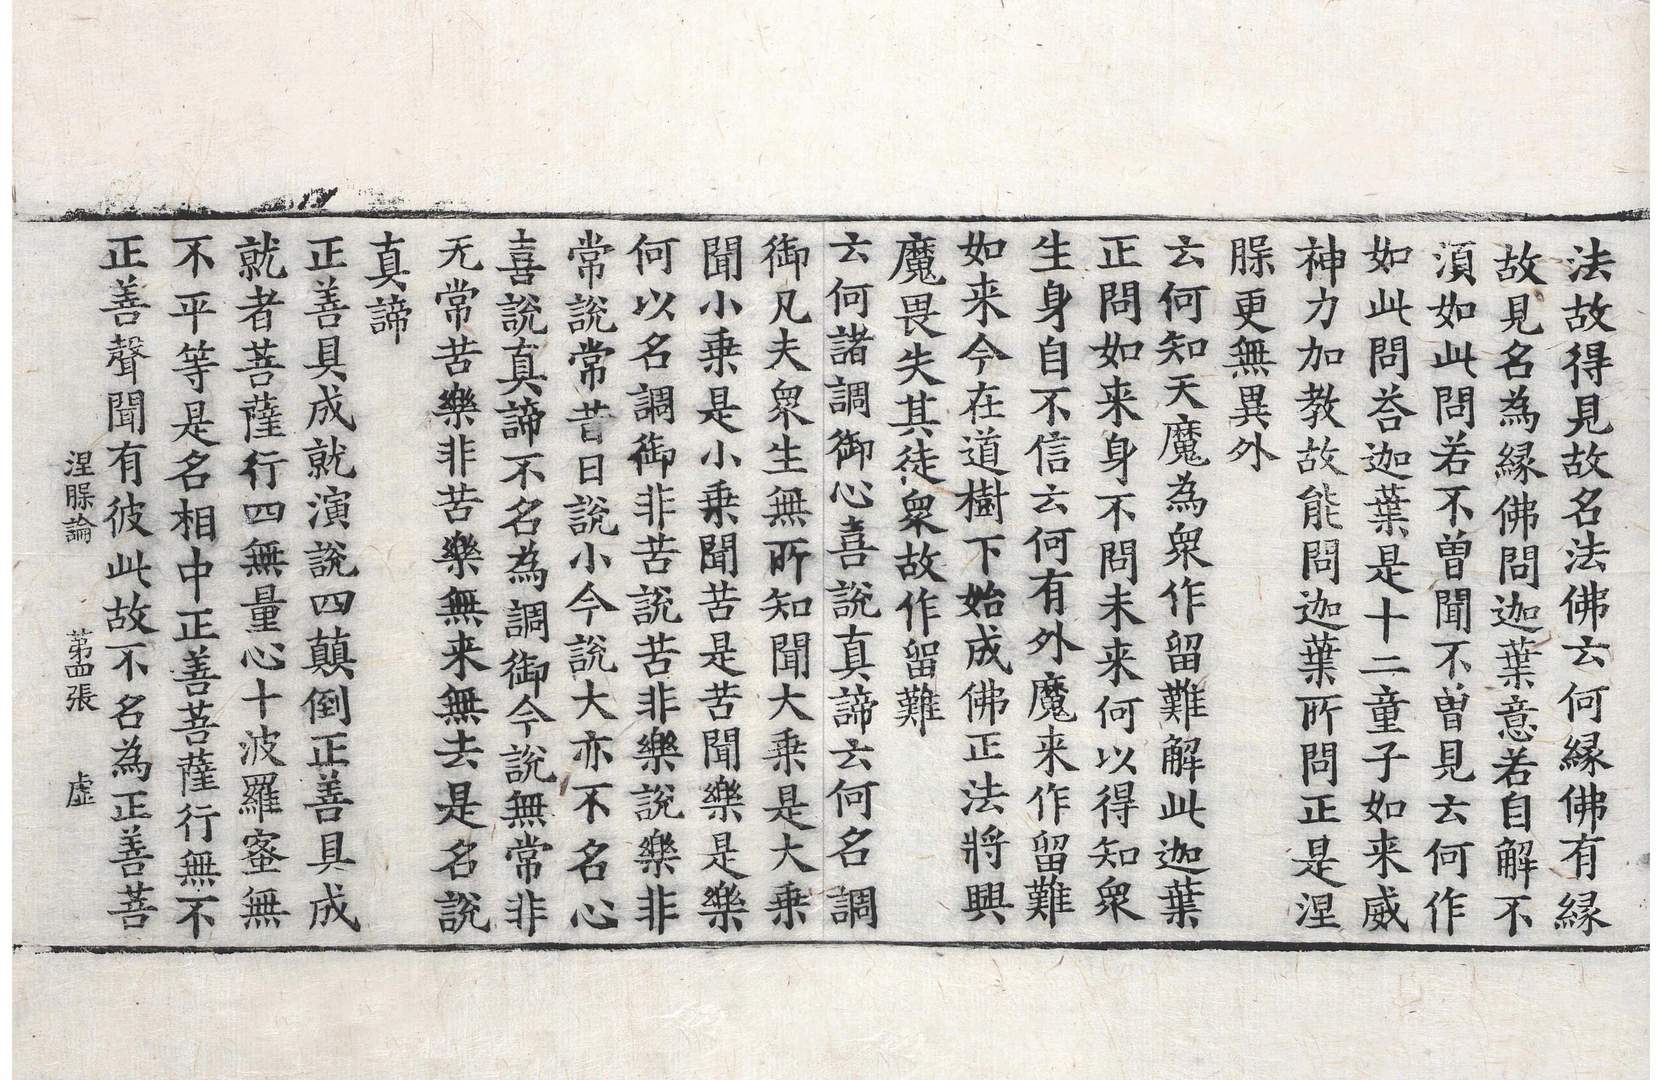 法故得見故名法佛云何緣佛有緣
故見名為緣佛問迦葉意若自解不
湏如此問若不曾聞不曾見云何作
如此問荅迦葉是十二童子如来威
神力加教故能問迦葉所問正是涅
䐵更無異外
云何知天魔為衆作留難解此迦葉
正問如来身不問未来何以得知衆
生身自不信云何有外魔来作留難
如来今在道樹下始成佛正法將興
魔畏失其徒衆故作留難
云何諸調御心喜說真諦云何名調
御凡夫衆生無所知聞大乗是大乗
聞小乗是小乗聞苦是苦聞樂是樂
何以名調御非苦說苦非樂說樂非
常說常昔日說小今說大亦不名心
喜說真諦不名為調御今說無常非
无常苦樂非苦樂無来無去是名說
真諦
正善具成就演說四顛倒正善具成
就者菩薩行四無量心十波羅蜜無
不平等是名相中正善菩薩行無不
正善聲聞有彼此故不名為正善菩
涅䐵論　第四張　虛